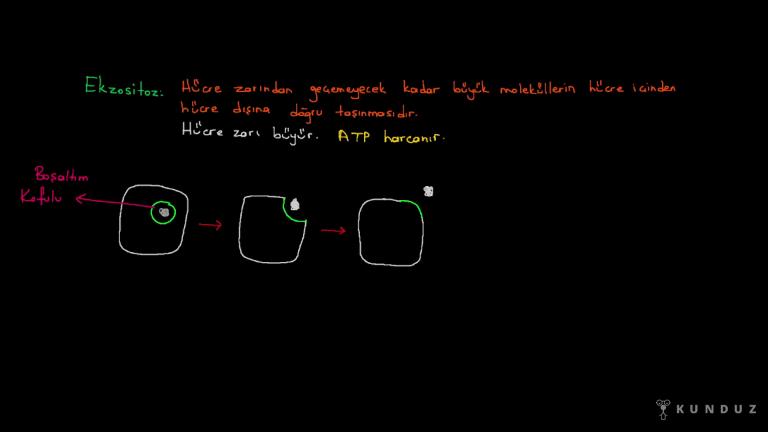 Ekzositoz: Hücre zarından geçemeyecek kadar büyük moleküllerin hücre içinden
hücre dışına doğru taşınmasıdır.
Hücre zarı büyür. ATP harcanır.
Boşaltım
Kofulu
KUNDUZ